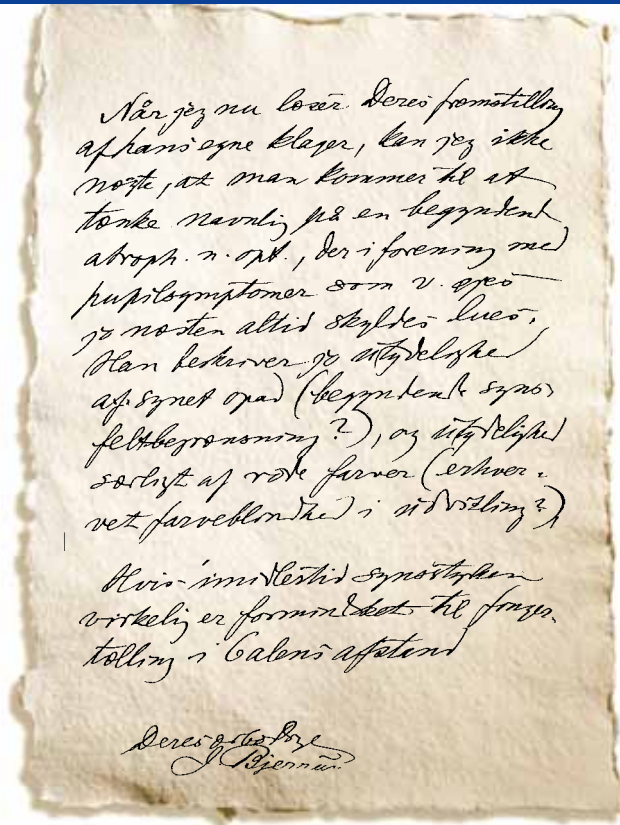 Når jeg nu læser Deres fremstilling
af hans egne klager, kan jeg ikke
nægte, at man kommer til at
tænke navnlig på en begyndende
atroph. n. opt., der i forening med
pupilsymptomer som v. øjes
jo næsten altid skyldes lues.
Han beskriver jo utydelighed
af synet opad (begyndende syns-
feltbegrænsning?), og utydelighed
særligt af røde farver (erhver-
vet farveblindhed i udvikling?)
Hvis imidlertid synsstyrken
virkelig er formindsket til finger-
tælling i 6 alens afstand
Deres
J Bjerrum